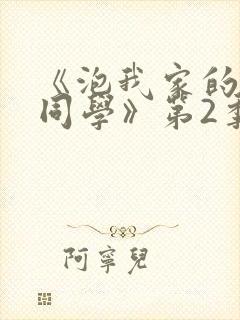 《泡我家的
同學》第2季
阿寧兒